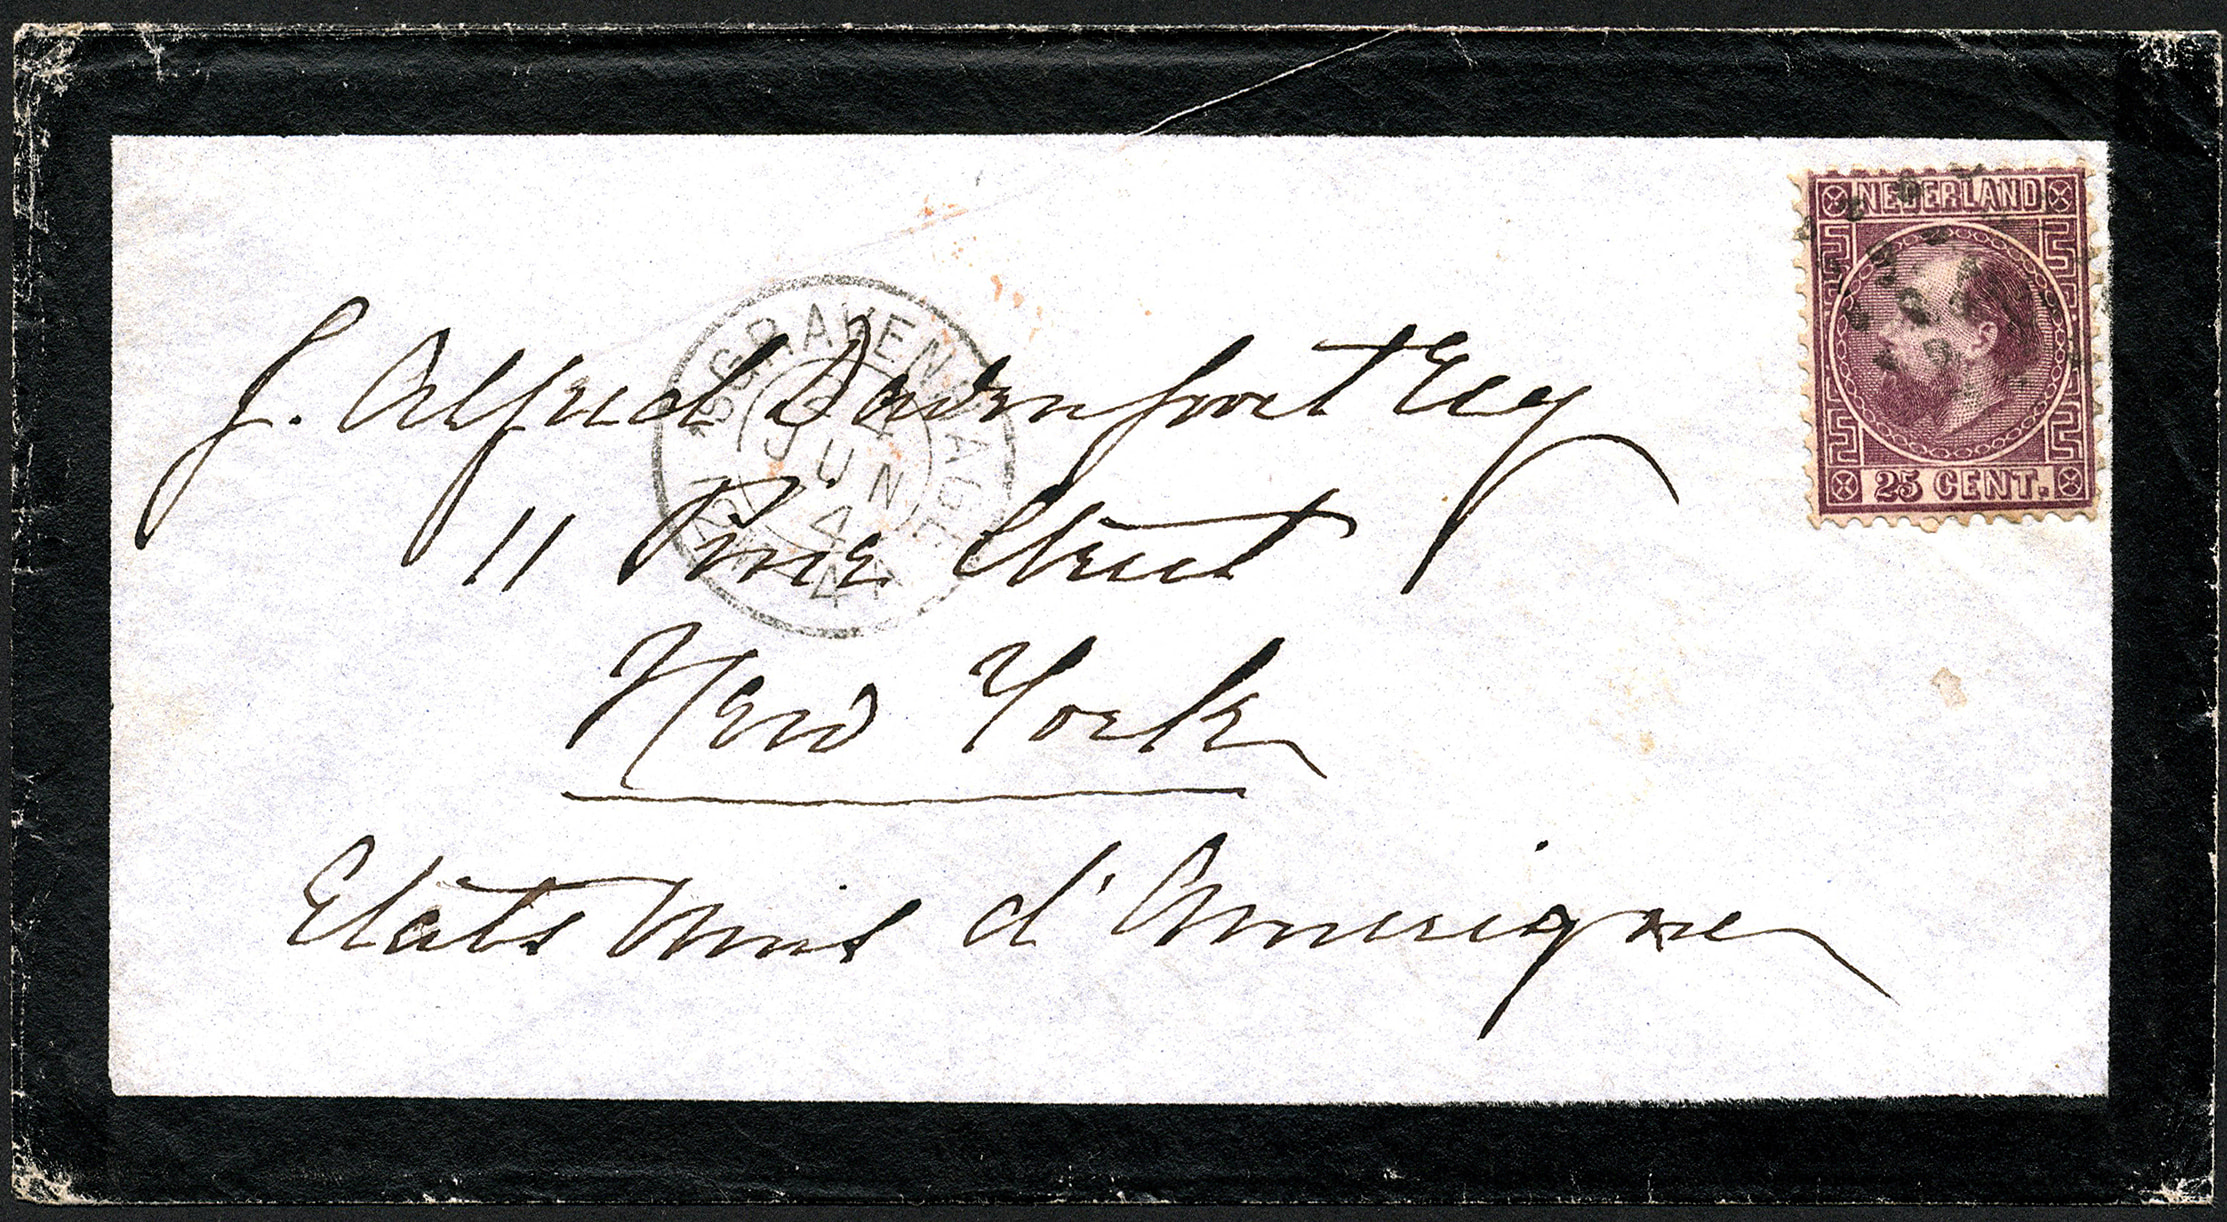 NEDERLAND
25 CENT.
'S GRAVENHAGE
24
JUN
74
J. Alfred Davenport Esq
11 Pine Street
New York
Etats Unis d'Amerique